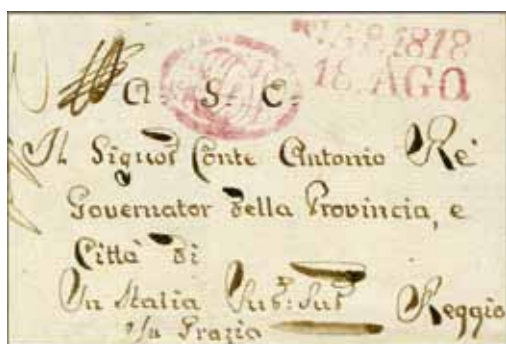 1818
18. AGO
A. S. C.
Il Signor Conte Antonio Re'
Governator della Provincia, e
Città di
In Italia Reggio